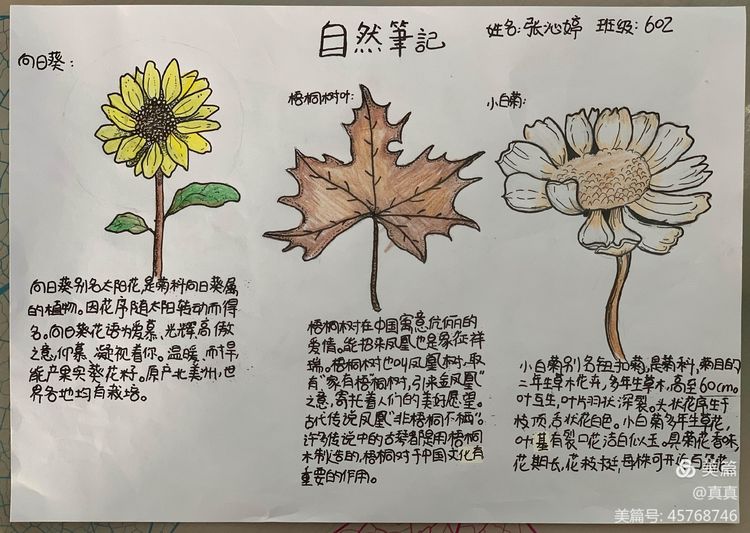 自然筆記
姓名:张沁婷 班级:602
向日葵:
向日葵别名太阳花,是菊科向日葵属
的植物。因花序随太阳转动而得
名。向日葵花语为爱慕、光辉、高傲
之意,仰慕、凝视着你。温暖,而
能产果实葵花籽。原产北美州,世
界各地均有栽培。
梧桐树叶:
梧桐树在中国寓意忧俩的
爱情。能招来凤凰也是象征祥
瑞。梧桐树也叫凤凰树,取
有“家有梧桐树,引来金凤凰”
之意,寄托着人们的美好愿望。
古代传说凤凰“非梧桐不栖”。
许多传说中的古琴都是用梧桐
木制造的,梧桐对于中国文化有
重要的作用。
小白菊:
小白菊别名玲珑菊,是菊科,菊目的
二年生草木花卉,多年生草木,高至60cm。
叶互生,叶片羽状深裂。头状花序生于
枝顶,舌状花白色。小白菊多年生草花,
叶基有裂口花洁白似玉。具菊花香味,
花期长,花枝,每株可开
美篇
@真真
美篇号:45768746